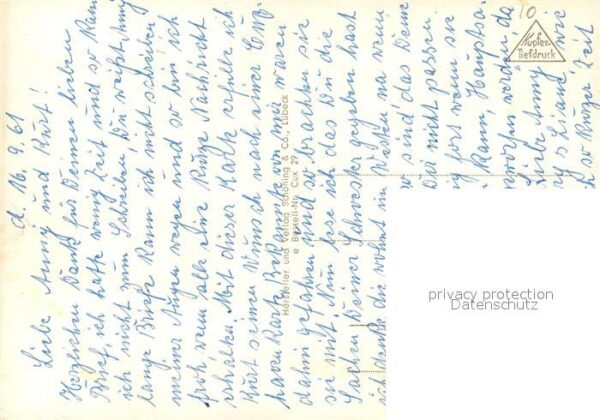 d. 16. 9. 61
Liebe Anny und Kurt!
Herzlichen Dank für Deinen lieben
Brief, ich hatte wenig Zeit und so kam
ich nicht zum Schreiben. Du weißt, ung
lange Briefe kann ich nicht schreiben
meiner Augen wegen und so bin ich
froh wenn alle eine kurze Nachricht
erhalten. Mit dieser Karte erfülle ich
Kurt seinen Wunsch nach einer Cux-
haven Karte Bekannte von mir waren
dahin gefahren und so brachten sie
sie mit. Nun lese ich das Du die
Sachen Deiner Schwester gegeben hast
ich denke die wohnt im Westen na wenn
sind das Deine
Dir nicht passen
fort wenn sie
kann, Hauptsa-
werden da
Liebe Anny
wie
so kurze Zeit
Hersteller und Verlag Schöning & Co., Lübeck
Bestell-Nr. Cux 29
Kupfer-
Tiefdruck
10
privacy protection
Datenschutz